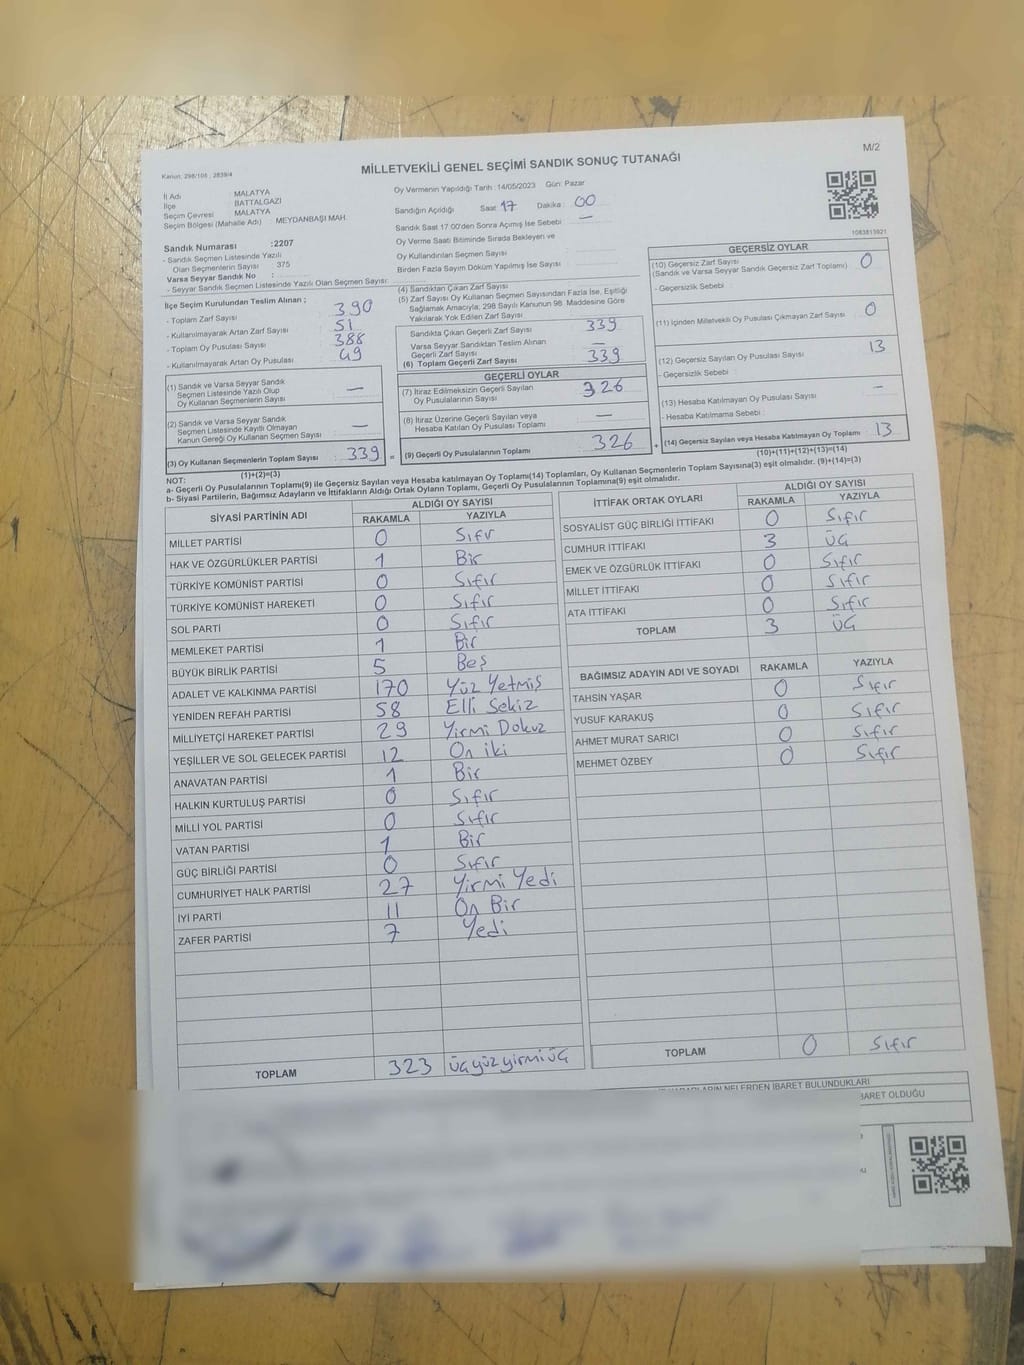 M/2
Kanun: 298/106 ; 2839/4
MİLLETVEKİLİ GENEL SEÇİMİ SANDIK SONUÇ TUTANAĞI
İl Adı : MALATYA
İlçe : BATTALGAZİ
Seçim Çevresi : MALATYA
Seçim Bölgesi (Mahalle Adı) : MEYDANBAŞI MAH.
Oy Vermenin Yapıldığı Tarih : 14/05/2023 Gün: Pazar
Sandığın Açıldığı Saat 17 Dakika : 00
Sandık Saat 17.00'den Sonra Açılmış İse Sebebi : —
Oy Verme Saati Bitiminde Sırada Bekleyen ve
Oy Kullandırılan Seçmen Sayısı
Birden Fazla Sayım Döküm Yapılmış İse Sayısı :
1083813921
Sandık Numarası :2207
- Sandık Seçmen Listesinde Yazılı
Olan Seçmenlerin Sayısı : 375
Varsa Seyyar Sandık No :
- Seyyar Sandık Seçmen Listesinde Yazılı Olan Seçmen Sayısı:
İlçe Seçim Kurulundan Teslim Alınan ;
- Toplam Zarf Sayısı : 390
- Kullanılmayarak Artan Zarf Sayısı : 51
- Toplam Oy Pusulası Sayısı : 388
- Kullanılmayarak Artan Oy Pusulası : 49
(1) Sandık ve Varsa Seyyar Sandık
Seçmen Listesinde Yazılı Olup
Oy Kullanan Seçmenlerin Sayısı : —
(2) Sandık ve Varsa Seyyar Sandık
Seçmen Listesinde Kayıtlı Olmayan
Kanun Gereği Oy Kullanan Seçmen Sayısı : —
(3) Oy Kullanan Seçmenlerin Toplam Sayısı : 339 =
(1)+(2)=(3)
(4) Sandıktan Çıkan Zarf Sayısı :
(5) Zarf Sayısı Oy Kullanan Seçmen Sayısından Fazla İse, Eşitliği
Sağlamak Amacıyla; 298 Sayılı Kanunun 98. Maddesine Göre
Yakılarak Yok Edilen Zarf Sayısı :
Sandıkta Çıkan Geçerli Zarf Sayısı : 339
Varsa Seyyar Sandıktan Teslim Alınan
Geçerli Zarf Sayısı : —
(6) Toplam Geçerli Zarf Sayısı : 339
GEÇERLİ OYLAR
(7) İtiraz Edilmeksizin Geçerli Sayılan
Oy Pusulalarının Sayısı : 326
(8) İtiraz Üzerine Geçerli Sayılan veya
Hesaba Katılan Oy Pusulası Toplamı : —
(9) Geçerli Oy Pusulalarının Toplamı : 326 +
GEÇERSİZ OYLAR
(10) Geçersiz Zarf Sayısı
(Sandık ve Varsa Seyyar Sandık Geçersiz Zarf Toplamı) : 0
- Geçersizlik Sebebi :
(11) İçinden Milletvekili Oy Pusulası Çıkmayan Zarf Sayısı : 0
(12) Geçersiz Sayılan Oy Pusulası Sayısı : 13
- Geçersizlik Sebebi :
(13) Hesaba Katılmayan Oy Pusulası Sayısı : —
- Hesaba Katılmama Sebebi :
(14) Geçersiz Sayılan veya Hesaba Katılmayan Oy Toplamı : 13
(10)+(11)+(12)+(13)=(14)
NOT:
a- Geçerli Oy Pusulalarının Toplamı(9) ile Geçersiz Sayılan veya Hesaba katılmayan Oy Toplamı(14) Toplamları, Oy Kullanan Seçmenlerin Toplam Sayısına(3) eşit olmalıdır. (9)+(14)=(3)
b- Siyasi Partilerin, Bağımsız Adayların ve İttifakların Aldığı Ortak Oyların Toplamı, Geçerli Oy Pusulalarının Toplamına(9) eşit olmalıdır.
SİYASİ PARTİNİN ADI ALDIĞI OY SAYISI
RAKAMLA YAZIYLA
MİLLET PARTİSİ 0 Sıfır
HAK VE ÖZGÜRLÜKLER PARTİSİ 1 Bir
TÜRKİYE KOMÜNİST PARTİSİ 0 Sıfır
TÜRKİYE KOMÜNİST HAREKETİ 0 Sıfır
SOL PARTİ 0 Sıfır
MEMLEKET PARTİSİ 1 Bir
BÜYÜK BİRLİK PARTİSİ 5 Beş
ADALET VE KALKINMA PARTİSİ 170 Yüz Yetmiş
YENİDEN REFAH PARTİSİ 58 Elli Sekiz
MİLLİYETÇİ HAREKET PARTİSİ 29 Yirmi Dokuz
YEŞİLLER VE SOL GELECEK PARTİSİ 12 On iki
ANAVATAN PARTİSİ 1 Bir
HALKIN KURTULUŞ PARTİSİ 0 Sıfır
MİLLİ YOL PARTİSİ 0 Sıfır
VATAN PARTİSİ 1 Bir
GÜÇ BİRLİĞİ PARTİSİ 0 Sıfır
CUMHURİYET HALK PARTİSİ 27 Yirmi Yedi
İYİ PARTİ 11 On Bir
ZAFER PARTİSİ 7 Yedi
TOPLAM 323 üçyüzyirmiüç
İTTİFAK ORTAK OYLARI ALDIĞI OY SAYISI
RAKAMLA YAZIYLA
SOSYALİST GÜÇ BİRLİĞİ İTTİFAKI 0 Sıfır
CUMHUR İTTİFAKI 3 üç
EMEK VE ÖZGÜRLÜK İTTİFAKI 0 Sıfır
MİLLET İTTİFAKI 0 Sıfır
ATA İTTİFAKI 0 Sıfır
TOPLAM 3 üç
BAĞIMSIZ ADAYIN ADI VE SOYADI RAKAMLA YAZIYLA
TAHSİN YAŞAR 0 Sıfır
YUSUF KARAKUŞ 0 Sıfır
AHMET MURAT SARICI 0 Sıfır
MEHMET ÖZBEY 0 Sıfır
TOPLAM 0 Sıfır
NELERDEN İBARET BULUNDUKLARI
OLDUĞU